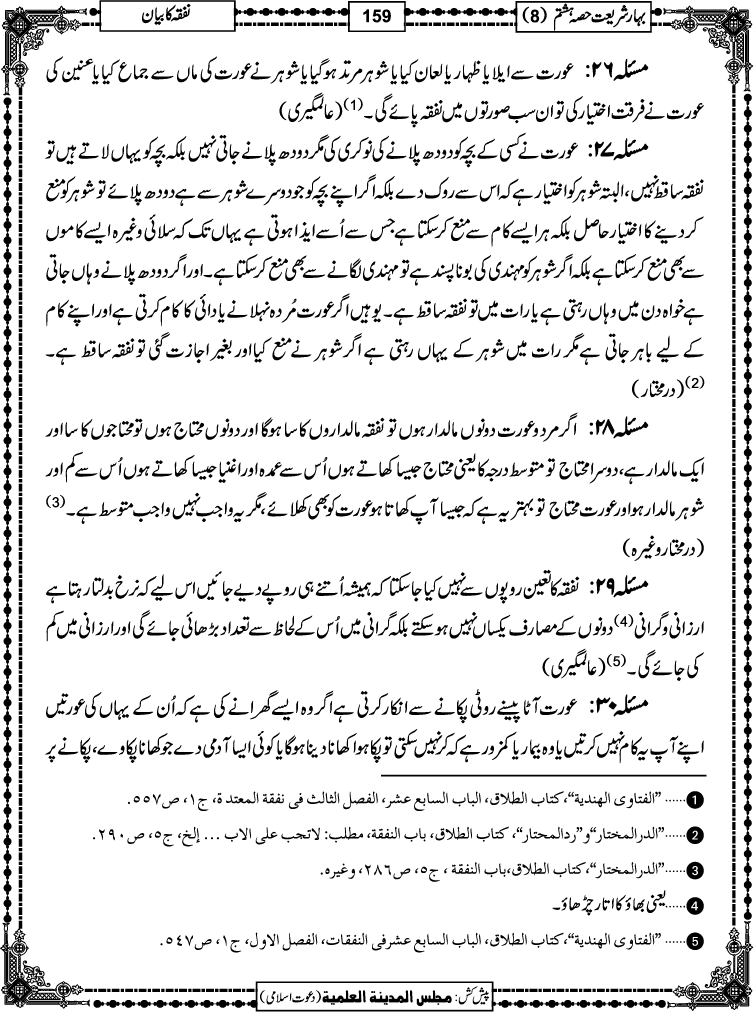 بہار شریعت حصہ ہشتم (8)
159
نفقہ کا بیان
مسئلہ ۲۶: عورت سے ایلا یا ظہار یا لعان کیا یا شوہر مرتد ہوگیا یا شوہر نے عورت کی ماں سے جماع کیا یا عنین کی
عورت نے فرقت اختیار کی تو ان سب صورتوں میں نفقہ پائے گی۔(1) (عالمگیری)
مسئلہ ۲۷: عورت نے کسی کے بچہ کو دودھ پلانے کی نوکری کی مگر دودھ پلانے جاتی نہیں بلکہ بچہ کو یہاں لاتے ہیں تو
نفقہ ساقط نہیں، البتہ شوہر کو اختیار ہے کہ اس سے روک دے بلکہ اگر اپنے بچہ کو جو دوسرے شوہر سے ہے دودھ پلائے تو شوہر کو منع
کردینے کا اختیار حاصل بلکہ ہر ایسے کام سے منع کرسکتا ہے جس سے اُسے ایذا ہوتی ہے یہاں تک کہ سلائی وغیرہ ایسے کاموں
سے بھی منع کرسکتا ہے بلکہ اگر شوہر کو مہندی کی بو ناپسند ہے تو مہندی لگانے سے بھی منع کرسکتا ہے۔ اور اگر دودھ پلانے وہاں جاتی
ہے خواہ دن میں وہاں رہتی ہے یا رات میں تو نفقہ ساقط ہے۔ یوہیں اگر عورت مُردہ نہلانے یا دائی کا کام کرتی ہے اور اپنے کام
کے لیے باہر جاتی ہے مگر رات میں شوہر کے یہاں رہتی ہے اگر شوہر نے منع کیا اور بغیر اجازت گئی تو نفقہ ساقط ہے۔
(2) (درمختار)
مسئلہ ۲۸: اگر مرد و عورت دونوں مالدار ہوں تو نفقہ مالداروں کا سا ہوگا اور دونوں محتاج ہوں تو محتاجوں کا سا اور
ایک مالدار ہے، دوسرا محتاج تو متوسط درجہ کا یعنی محتاج جیسا کھاتے ہوں اُس سے عمدہ اور اغنیا جیسا کھاتے ہوں اُس سے کم اور
شوہر مالدار ہو اور عورت محتاج تو بہتر یہ ہے کہ جیسا آپ کھاتا ہو عورت کو بھی کھلائے، مگر یہ واجب نہیں واجب متوسط ہے۔(3)
(درمختار وغیرہ)
مسئلہ ۲۹: نفقہ کا تعین روپوں سے نہیں کیا جاسکتا کہ ہمیشہ اُتنے ہی روپے دیے جائیں اس لیے کہ نرخ بدلتا رہتا ہے
ارزانی و گرانی(4) دونوں کے مصارف یکساں نہیں ہوسکتے بلکہ گرانی میں اُس کے لحاظ سے تعداد بڑھائی جائے گی اور ارزانی میں کم
کی جائے گی۔(5) (عالمگیری)
مسئلہ ۳۰: عورت آٹا پیسنے روٹی پکانے سے انکار کرتی ہے اگر وہ ایسے گھرانے کی ہے کہ اُن کے یہاں کی عورتیں
اپنے آپ یہ کام نہیں کرتیں یا وہ بیمار یا کمزور ہے کہ کر نہیں سکتی تو پکا ہوا کھانا دینا ہوگا یا کوئی ایسا آدمی دے جو کھانا پکاوے، پکانے پر
1 ...... ”الفتاوی الهندية“، کتاب الطلاق، الباب السابع عشر، الفصل الثالث فی نفقة المعتدة، ج۱، ص۵۵۷.
2 ...... ”الدرالمختار“ و ”ردالمحتار“، کتاب الطلاق، باب النفقة، مطلب: لاتجب علی الاب ... إلخ، ج۵، ص۲۹۰.
3 ...... ”الدرالمختار“، کتاب الطلاق، باب النفقة، ج۵، ص۲۸۶، وغیره.
4 ...... یعنی بھاؤ کا اتار چڑھاؤ۔
5 ...... ”الفتاوی الهندية“، کتاب الطلاق، الباب السابع عشر فی النفقات، الفصل الاول، ج۱، ص۵۴۷.
پیش کش: مجلس المدينة العلمية (دعوت اسلامی)